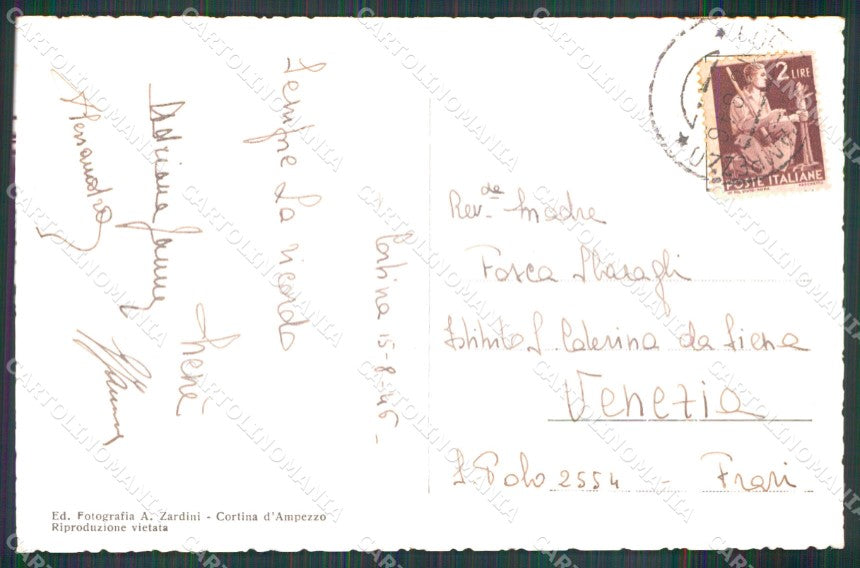 Cortina 15-8-46-
Sempre La ricordo
Irene
Adriana
Alessandra
Rev.da Madre
Fosca Sbaragli
Istituto S. Caterina da Siena
Venezia
S. Polo 2554 - Frari
2 LIRE
POSTE ITALIANE
Ed. Fotografia A. Zardini - Cortina d'Ampezzo
Riproduzione vietata
CARTOLINOMANIA